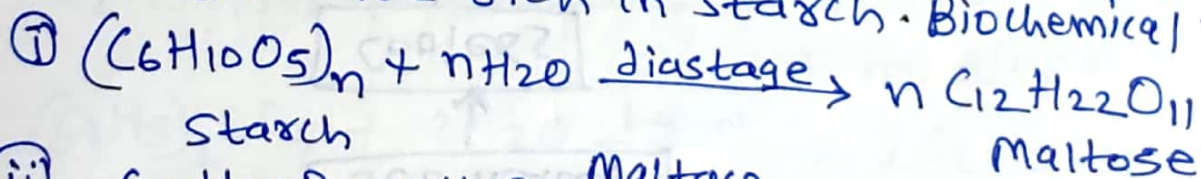 in starch. Biochemical
① (C6H10O5)n + nH2O diastage → n C12H22O11
Starch Maltose